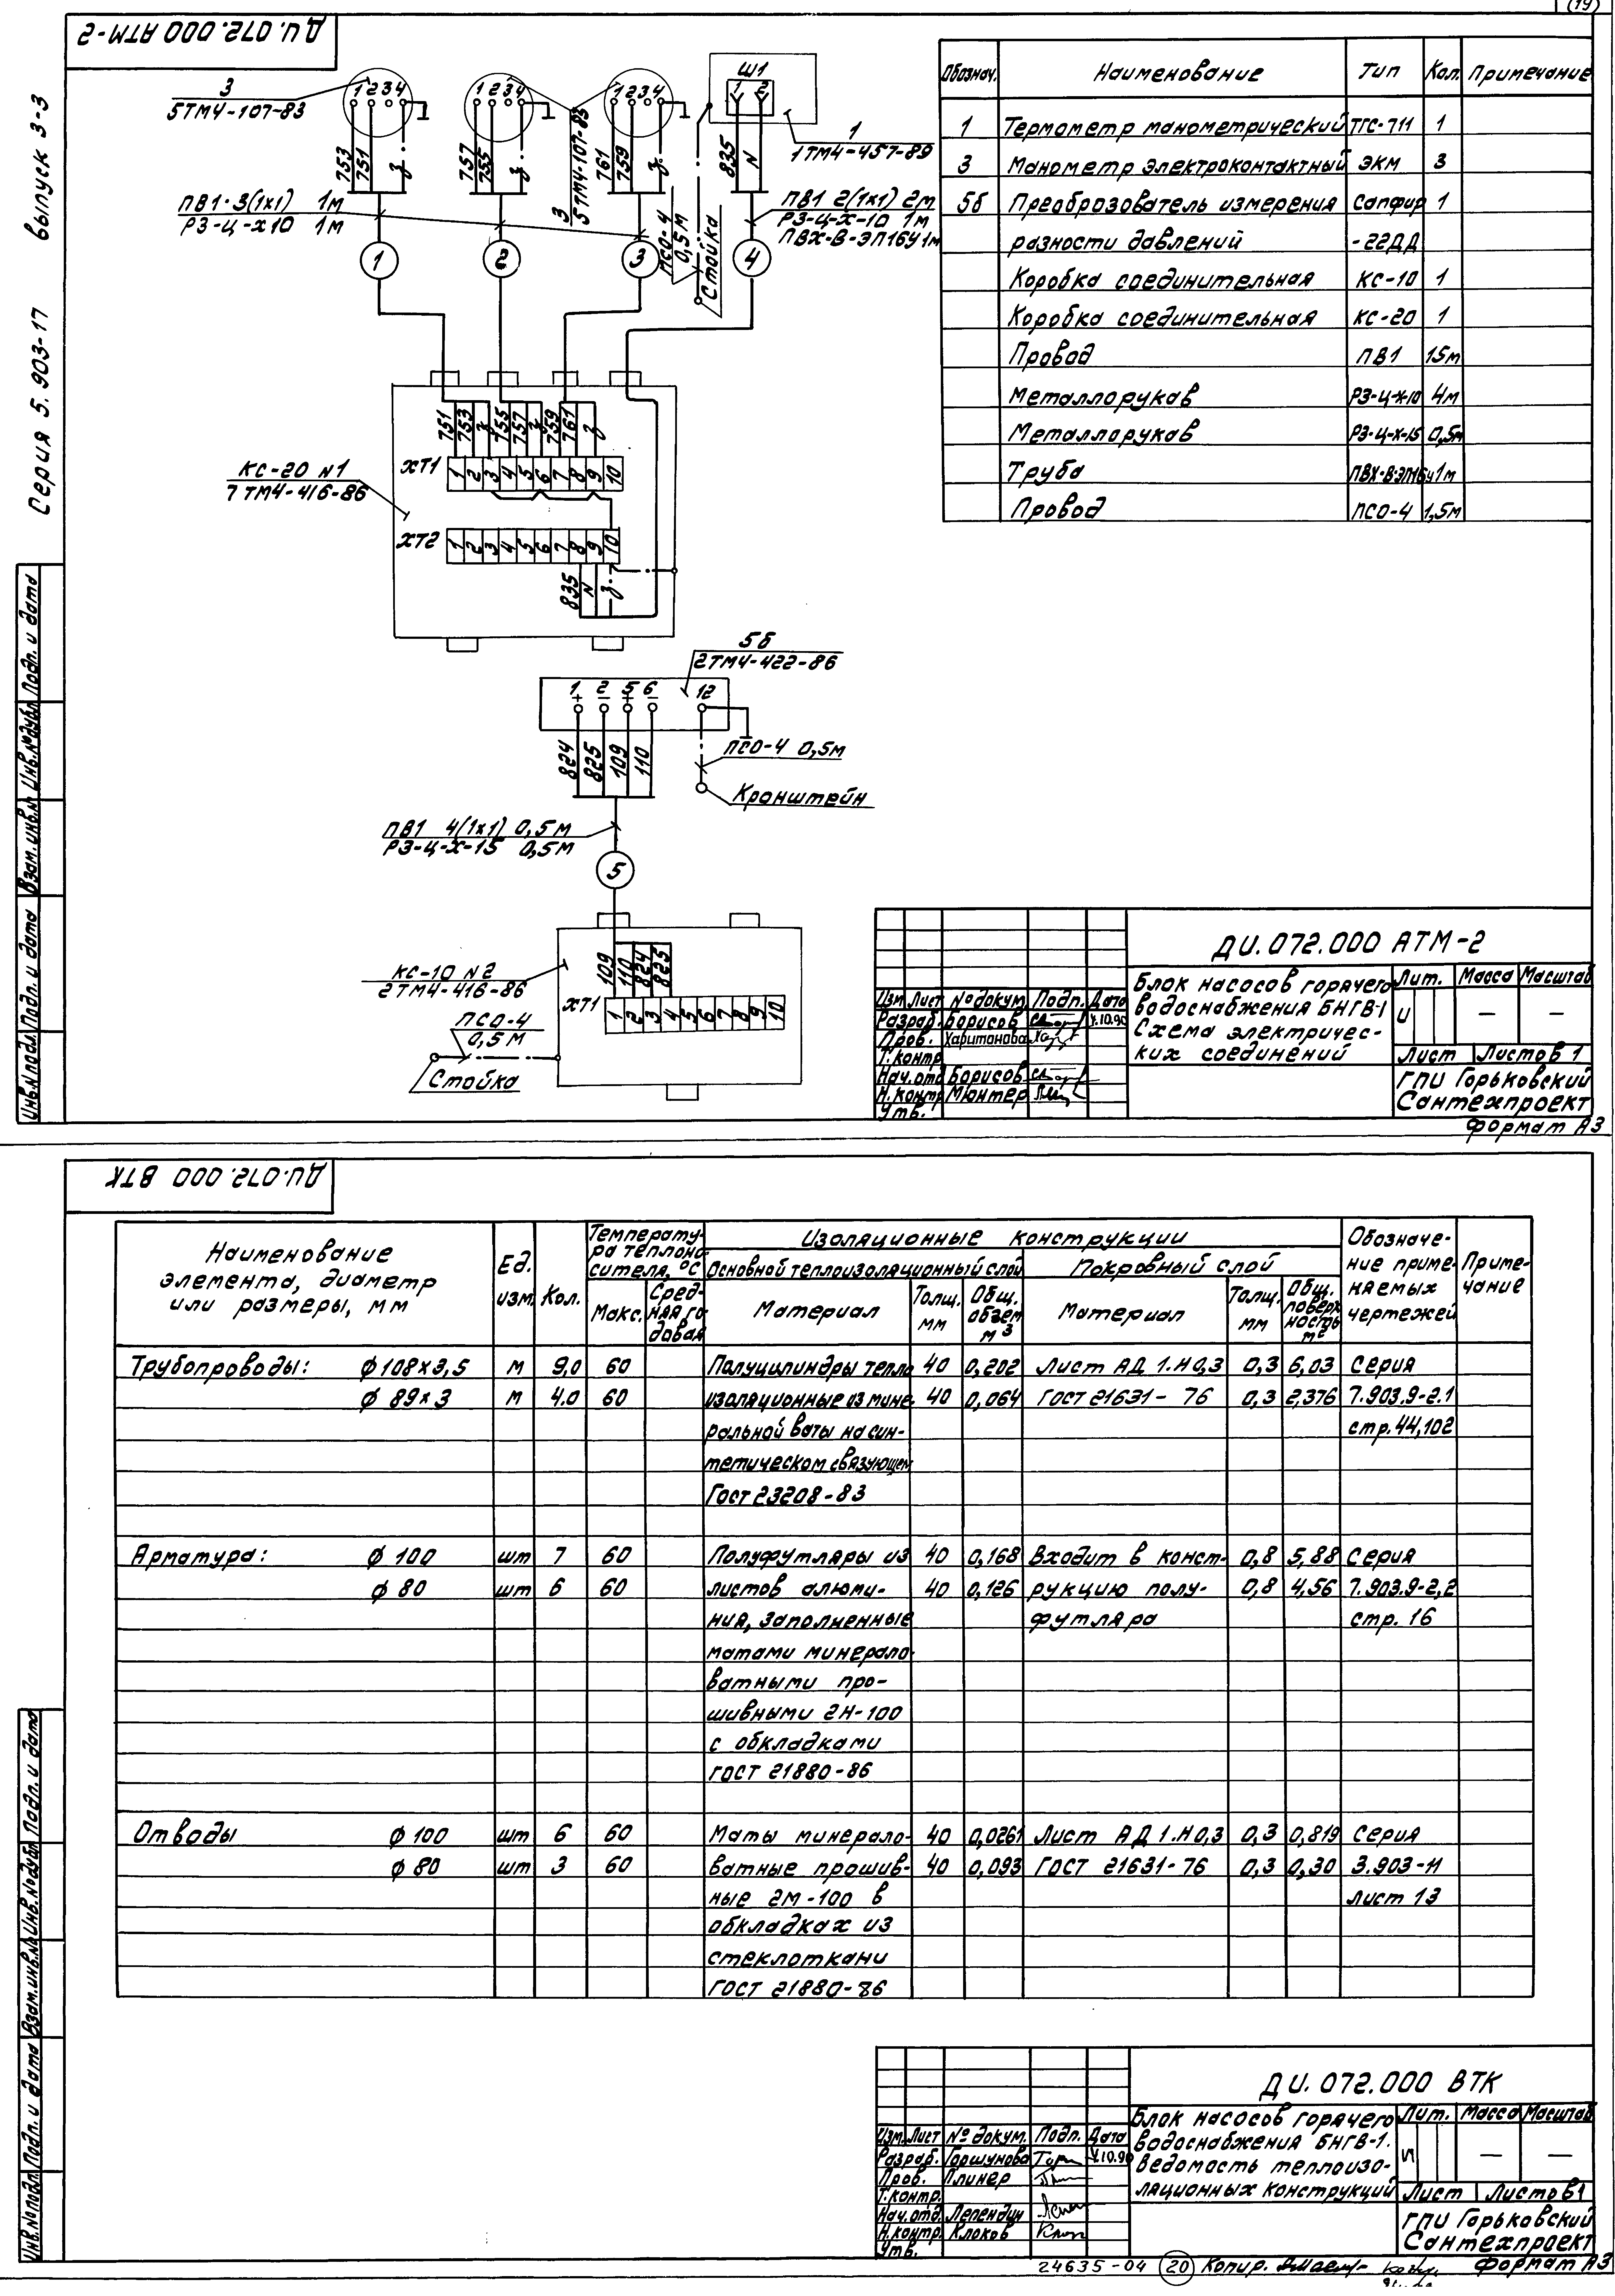 (19)
ДИ.072.000 АТМ-2
Серия 5.903-17 выпуск 3-3
3
5ТМ4-107-83
1 2 3 4
1 2 3 4
1 2 3 4
Ш1
1 2
1
1ТМ4-457-89
753
751
з
757
755
з
3
5ТМ4-107-83
761
759
з
835
N
ПВ1·3(1х1) 1м
РЗ-Ц-Х10 1м
ПСО-4
0,5м
Стойка
ПВ1 2(1х1) 2м
РЗ-Ц-Х-10 1м
ПВХ-В-ЭП16У1м
1
2
3
4
751
753
з
755
757
з
759
761
з
КС-20 N1
7ТМ4-416-86
ХТ1
1 2 3 4 5 6 7 8 9 10
ХТ2
1 2 3 4 5 6 7 8 9 10
835
N
з
5б
2ТМ4-422-86
1 2 5 6 12
+ − + −
824
825
109
110
ПСО-4 0,5м
Кронштейн
ПВ1 4(1х1) 0,5м
РЗ-Ц-Х-15 0,5м
5
КС-10 N2
2ТМ4-416-86
109
110
824
825
ХТ1
1 2 3 4 5 6 7 8 9 10
ПСО-4
0,5м
Стойка
Обознач. Наименование Тип Кол. Примечание
1 Термометр манометрический ТГС-711 1
3 Манометр электроконтактный ЭКМ 3
5б Преобразователь измерения Сапфир 1
разности давлений -22ДД
Коробка соединительная КС-10 1
Коробка соединительная КС-20 1
Провод ПВ1 15м
Металлорукав РЗ-Ц-Х-10 4м
Металлорукав РЗ-Ц-Х-15 0,5м
Труба ПВХ-В-ЭП16У 1м
Провод ПСО-4 1,5м
ДИ.072.000 АТМ-2
Блок насосов горячего
водоснабжения БНГВ-1
Схема электричес-
ких соединений
Лит. Масса Масштаб
И — —
Лист Листов 1
ГПИ Горьковский
Сантехпроект
Изм. Лист № докум. Подп. Дата
Разраб. Борисов 4.10.90
Пров. Харитонова
Т.контр.
Нач.отд. Борисов
Н.контр. Мюнтер
Утв.
Формат А3
Инв.№ подл. Подп. и дата Взам.инв.№ Инв.№ дубл. Подп. и дата
ДИ.072.000 ВТК
Наименование
элемента, диаметр
или размеры, мм
Ед.
изм.
Кол.
Температу-
ра теплоно-
сителя, °С
Макс.
Сред-
няя го-
довая
Изоляционные конструкции
Основной теплоизоляционный слой
Покровный слой
Материал
Толщ.
мм
Общ.
объем
м³
Материал
Толщ.
мм
Общ.
поверх-
ность
м²
Обозначе-
ние приме-
няемых
чертежей
Приме-
чание
Трубопроводы: ф 108х3,5 м 9,0 60 Полуцилиндры тепло 40 0,202 Лист АД 1.Н 0,3 0,3 6,03 Серия
ф 89х3 м 4.0 60 изоляционные из мине- 40 0,064 ГОСТ 21631-76 0,3 2,376 7.903.9-2.1
ральной ваты на син- стр.44,102
тетическом связующем
Гост 23208-83
Арматура: ф 100 шт 7 60 Полуфутляры из 40 0,168 Входит в конст- 0,8 5,88 Серия
ф 80 шт 6 60 листов алюми- 40 0,126 рукцию полу- 0,8 4,56 7.903.9-2,2
ния, заполненные футляра стр. 16
матами минерало-
ватными про-
шивными 2Н-100
с обкладками
ГОСТ 21880-86
Отводы ф 100 шт 6 60 Маты минерало- 40 0,0261 Лист АД 1.Н 0,3 0,3 0,819 Серия
ф 80 шт 3 60 ватные прошив- 40 0,093 ГОСТ 21631-76 0,3 0,30 3.903-11
ные 2М-100 в лист 13
обкладках из
стеклоткани
ГОСТ 21880-86
ДИ.072.000 ВТК
Блок насосов горячего
водоснабжения БНГВ-1.
Ведомость теплоизо-
ляционных конструкций
Лит. Масса Масштаб
И — —
Лист Листов 1
ГПИ Горьковский
Сантехпроект
Изм. Лист № докум. Подп. Дата
Разраб. Горшунова 4.10.90
Пров. Плинер
Т.контр.
Нач.отд. Лепендин
Н.контр. Клоков
Утв.
Инв.№ подл. Подп. и дата Взам.инв.№ Инв.№ дубл. Подп. и дата
24635-04 20 Копир. Формат А3